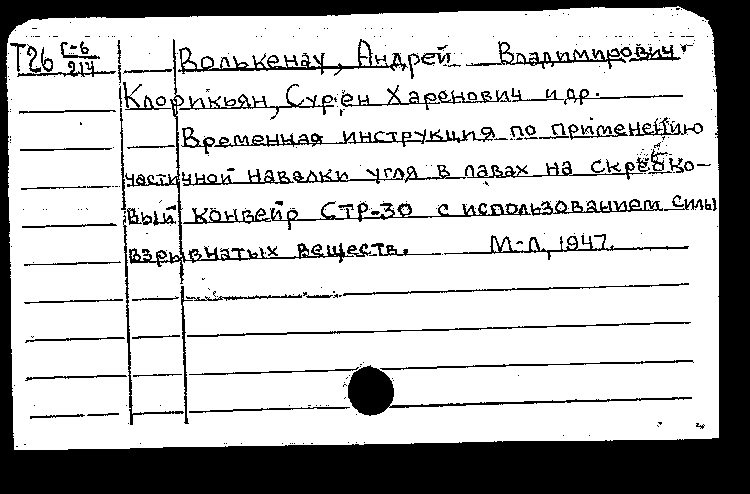 Т26 Г-6/214 Волькенау, Андрей Владимирович
Клорикьян, Сурен Харенович и др.
Временная инструкция по применению
частичной навалки угля в лавах на скребко-
вый конвейр СТР-30 с использованием силы
взрывчатых веществ. М-Л, 1947.